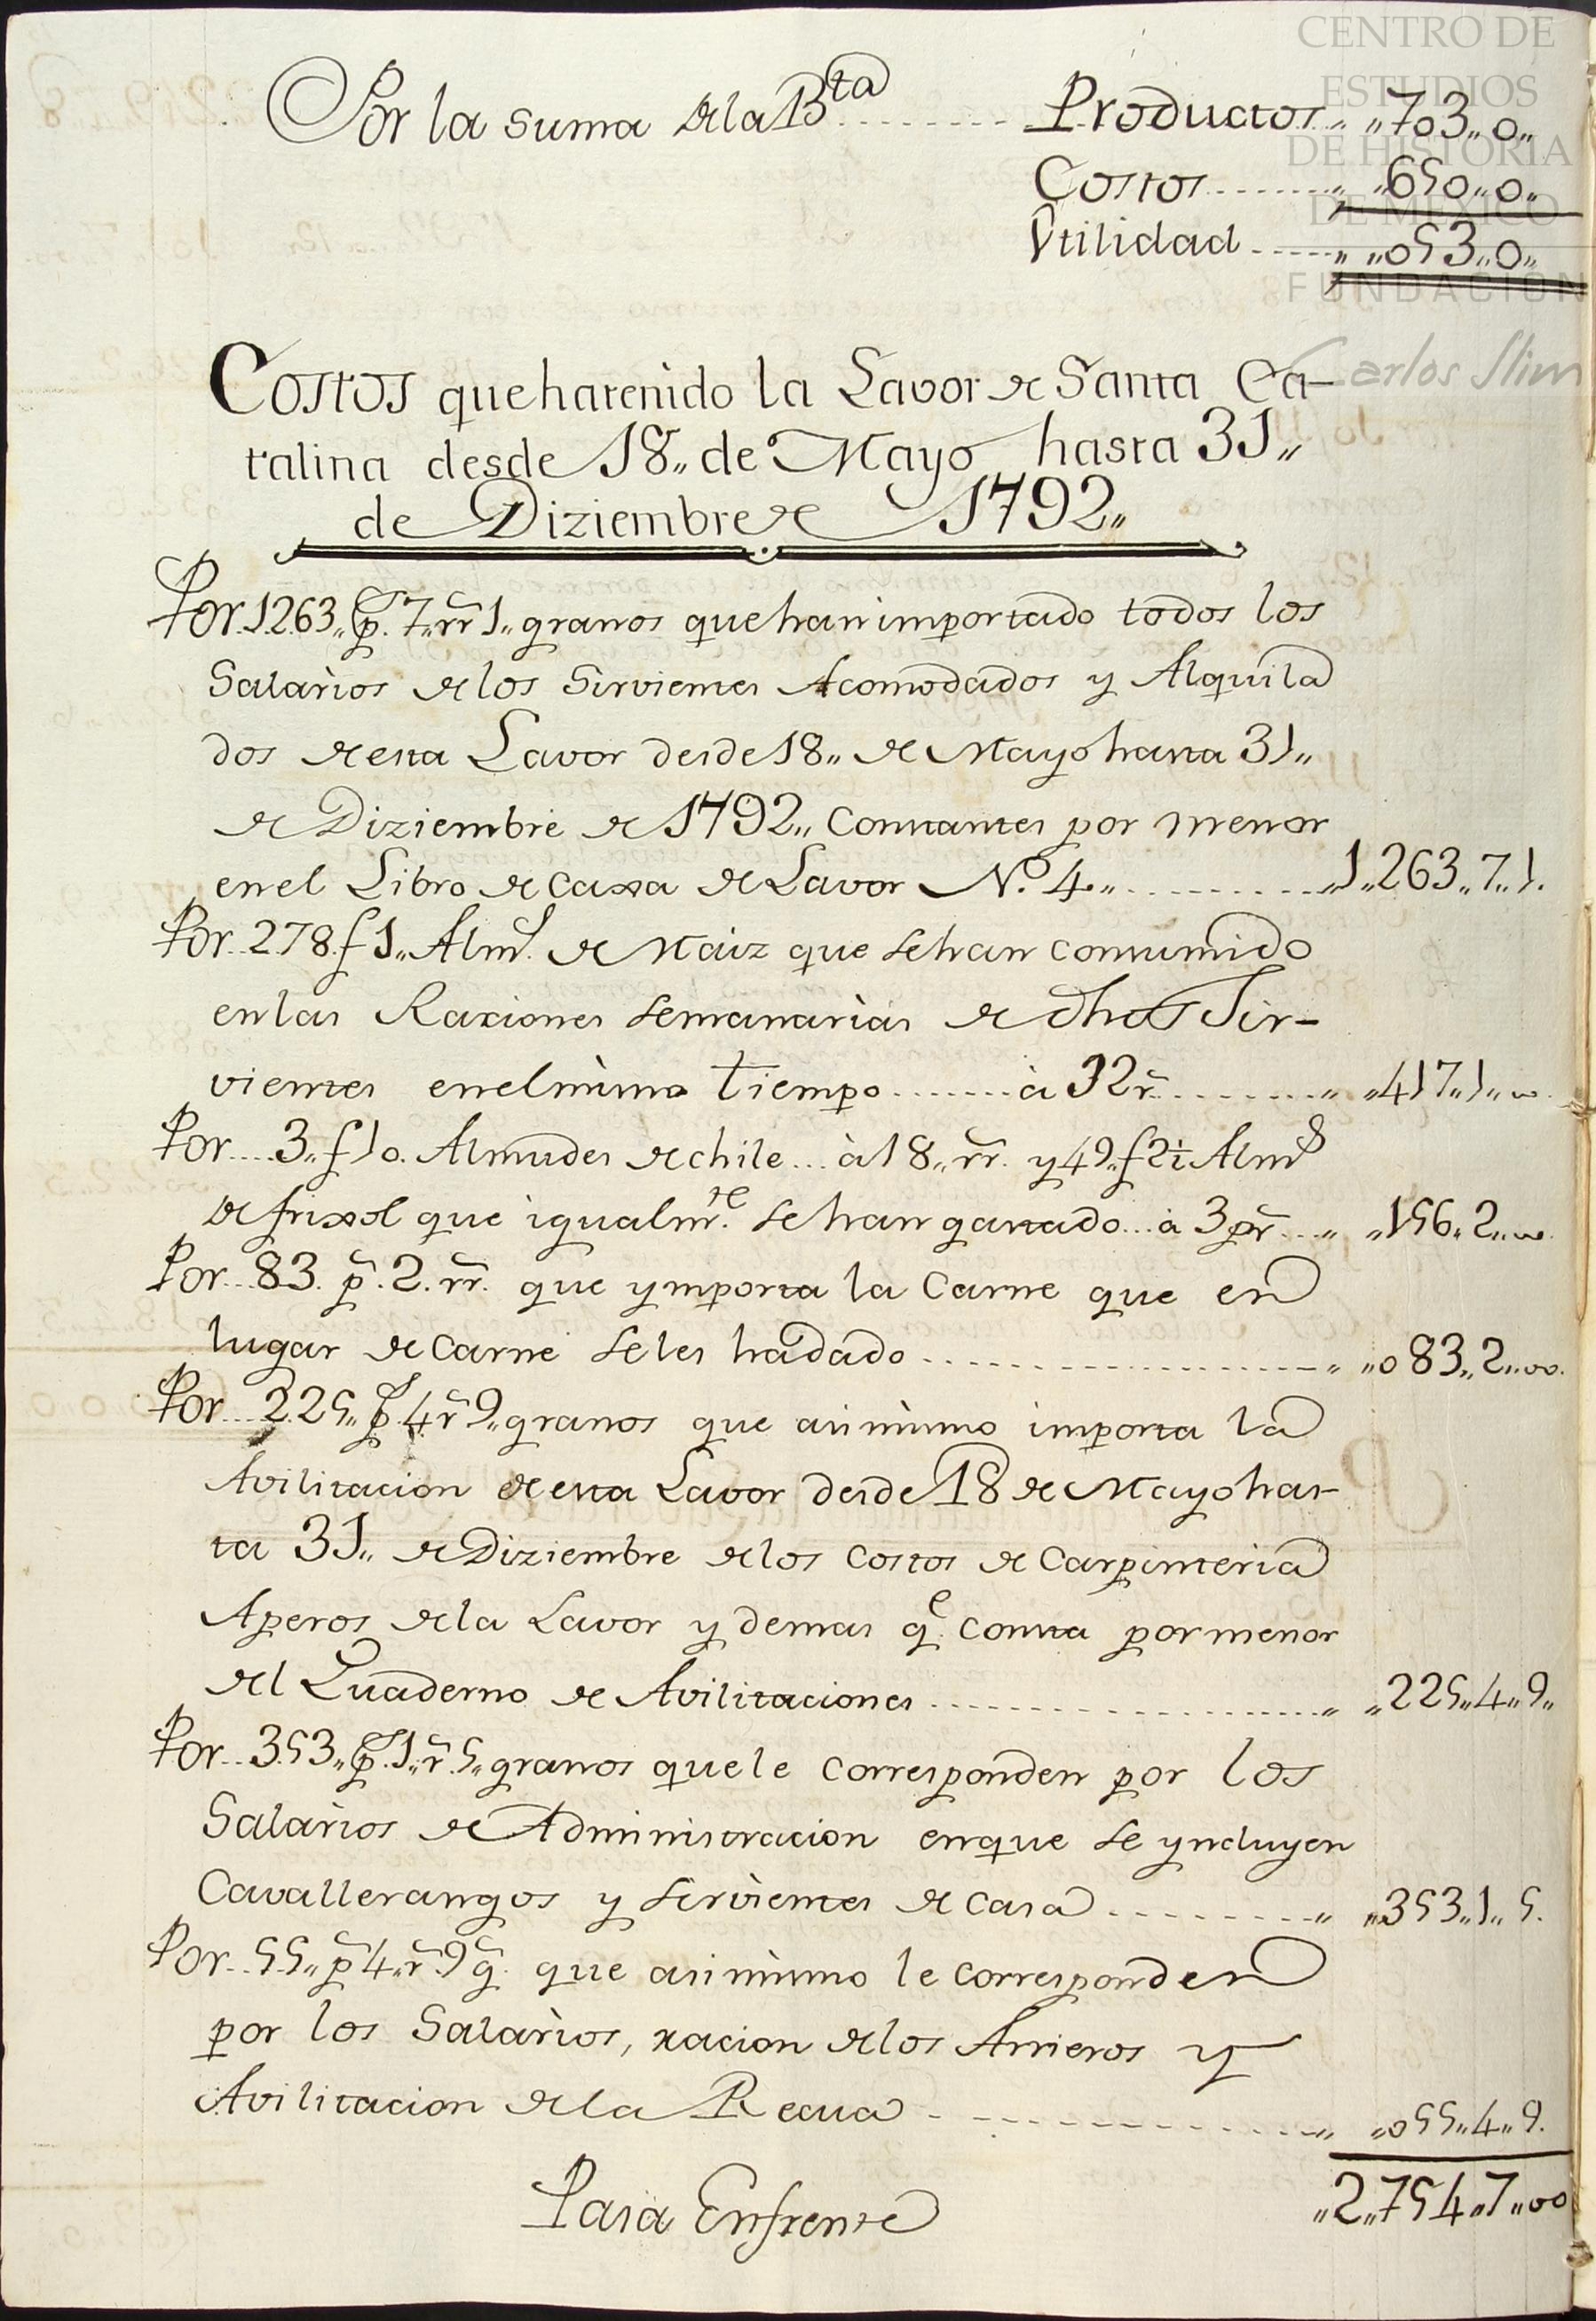 CENTRO DE
ESTUDIOS
DE HISTORIA
DE MEXICO
FUNDACION
Carlos Slim
Por la suma dela B.ta ........ Productos.. „703„0„
Costos........„ „650„0„
Vtilidad.....„ „053„0„
Costos que ha tenido la Lavor de Santa Ca-
talina desde 18„ de Mayo hasta 31„
de Diziembre de 1792„
Por..1263„ p.s 7„ rr.s 1„ granos que han importado todos los
Salarios de los Sirvientes Acomodados y Alquila
dos de esta Lavor desde 18„ de Mayo hasta 31„
de Diziembre de 1792„ Constantes por menor
en el Libro de caxa de Lavor N.º 4„..........„1„263„7„1.
Por..278.f 1„ Alm.d de Maiz que se han consumido
en las Raxiones semanarias de dhos Sir-
vientes en el mismo tiempo.......à 32 r.s.........„ „417„1„00.
Por....3„f 10. Almudes de chile...à 18„ rr.s y 49„f 2½ Alm.s
de frixol que igualm.te se han gastado...à 3 p.s..„ „156„2„00.
Por...83. p.s 2. rr.s que ymporta la Carne que en
lugar de Carne se les ha dado....................„ „083„2„00.
Por...225„ p.s 4 r.s 9„ granos que asi mismo importa la
Avilitacion de esta Lavor desde 18 de Mayo has-
ta 31„ de Diziembre de los costos de Carpinteria
Aperos dela Lavor y demas q.e consta por menor
del Quaderno de Avilitaciones....................„ „225„4„9„
Por...353„ p.s 1„ r.s 5„ granos que le corresponden por los
Salarios de Administracion en que se yncluyen
Cavallerangos y sirvientes de casa.........„ „353„1„5.
Por..55„ p.s 4„ r.s 9 g.s que asi mismo le corresponden
por los Salarios, racion de los Arrieros y
Avilitacion dela Recua..................„ „055„4„9.
Pasa Enfrente „2„754„7„00